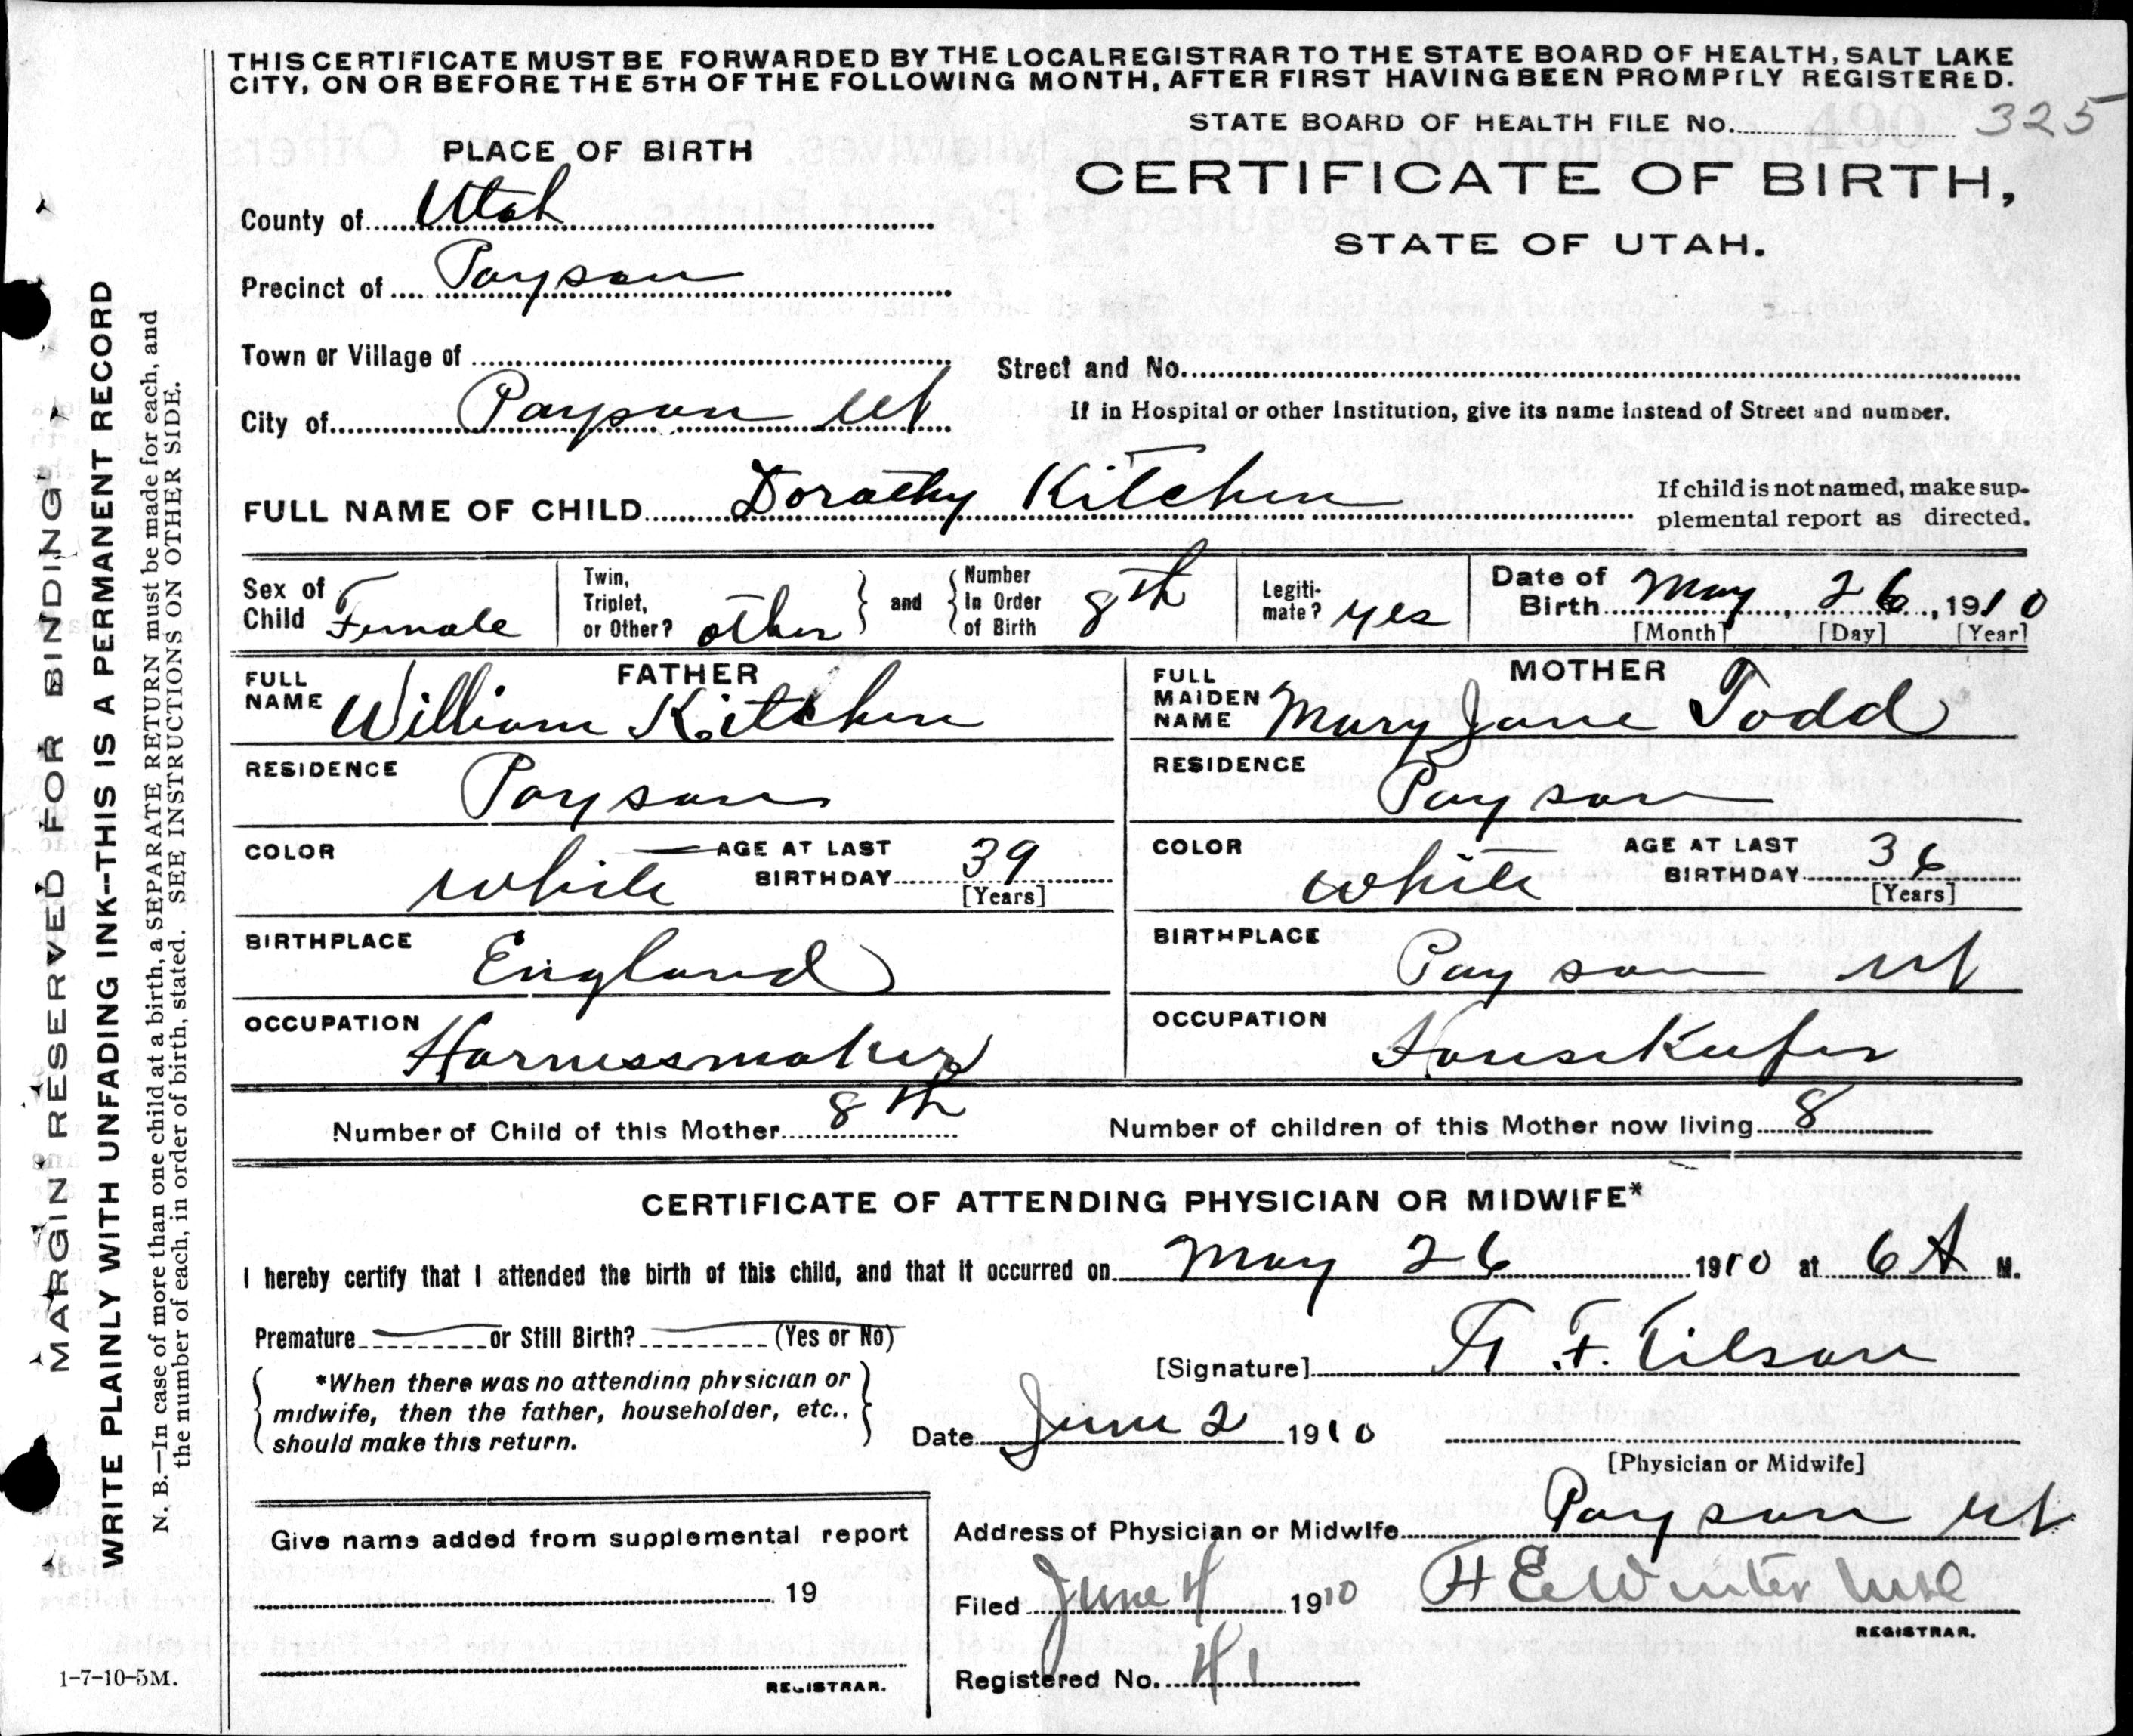 THIS CERTIFICATE MUST BE FORWARDED BY THE LOCAL REGISTRAR TO THE STATE BOARD OF HEALTH, SALT LAKE
CITY, ON OR BEFORE THE 5TH OF THE FOLLOWING MONTH, AFTER FIRST HAVING BEEN PROMPTLY REGISTERED.
STATE BOARD OF HEALTH FILE No. 325
PLACE OF BIRTH
CERTIFICATE OF BIRTH,
STATE OF UTAH.
County of Utah
Precinct of Payson
Town or Village of
Street and No.
City of Payson Ut
If in Hospital or other Institution, give its name instead of Street and number.
FULL NAME OF CHILD Dorathy Kitchen
If child is not named, make sup-
plemental report as directed.
Sex of Child Female
Twin, Triplet, or Other? other
and Number In Order of Birth 8th
Legiti-mate? yes
Date of Birth May, 26, 1910
[Month] [Day] [Year]
FATHER
FULL NAME William Kitchen
RESIDENCE Payson
COLOR White AGE AT LAST BIRTHDAY 39
[Years]
BIRTHPLACE England
OCCUPATION Harnessmaker
MOTHER
FULL MAIDEN NAME Mary Jane Todd
RESIDENCE Payson
COLOR White AGE AT LAST BIRTHDAY 36
[Years]
BIRTHPLACE Payson Ut
OCCUPATION Housekeeper
Number of Child of this Mother 8th Number of children of this Mother now living 8
CERTIFICATE OF ATTENDING PHYSICIAN OR MIDWIFE*
I hereby certify that I attended the birth of this child, and that it occurred on May 26 1910 at 6 A M.
Premature or Still Birth? (Yes or No)
*When there was no attending physician or
midwife, then the father, householder, etc.,
should make this return.
[Signature] Tilson
Date June 2 1910
[Physician or Midwife]
Address of Physician or Midwife Payson Ut
Filed June 4 1910
REGISTRAR.
Registered No. 41
Give name added from supplemental report
19
REGISTRAR.
1-7-10-5M.
MARGIN RESERVED FOR BINDING
WRITE PLAINLY WITH UNFADING INK--THIS IS A PERMANENT RECORD
N. B.—In case of more than one child at a birth, a SEPARATE RETURN must be made for each, and
the number of each, in order of birth, stated. SEE INSTRUCTIONS ON OTHER SIDE.